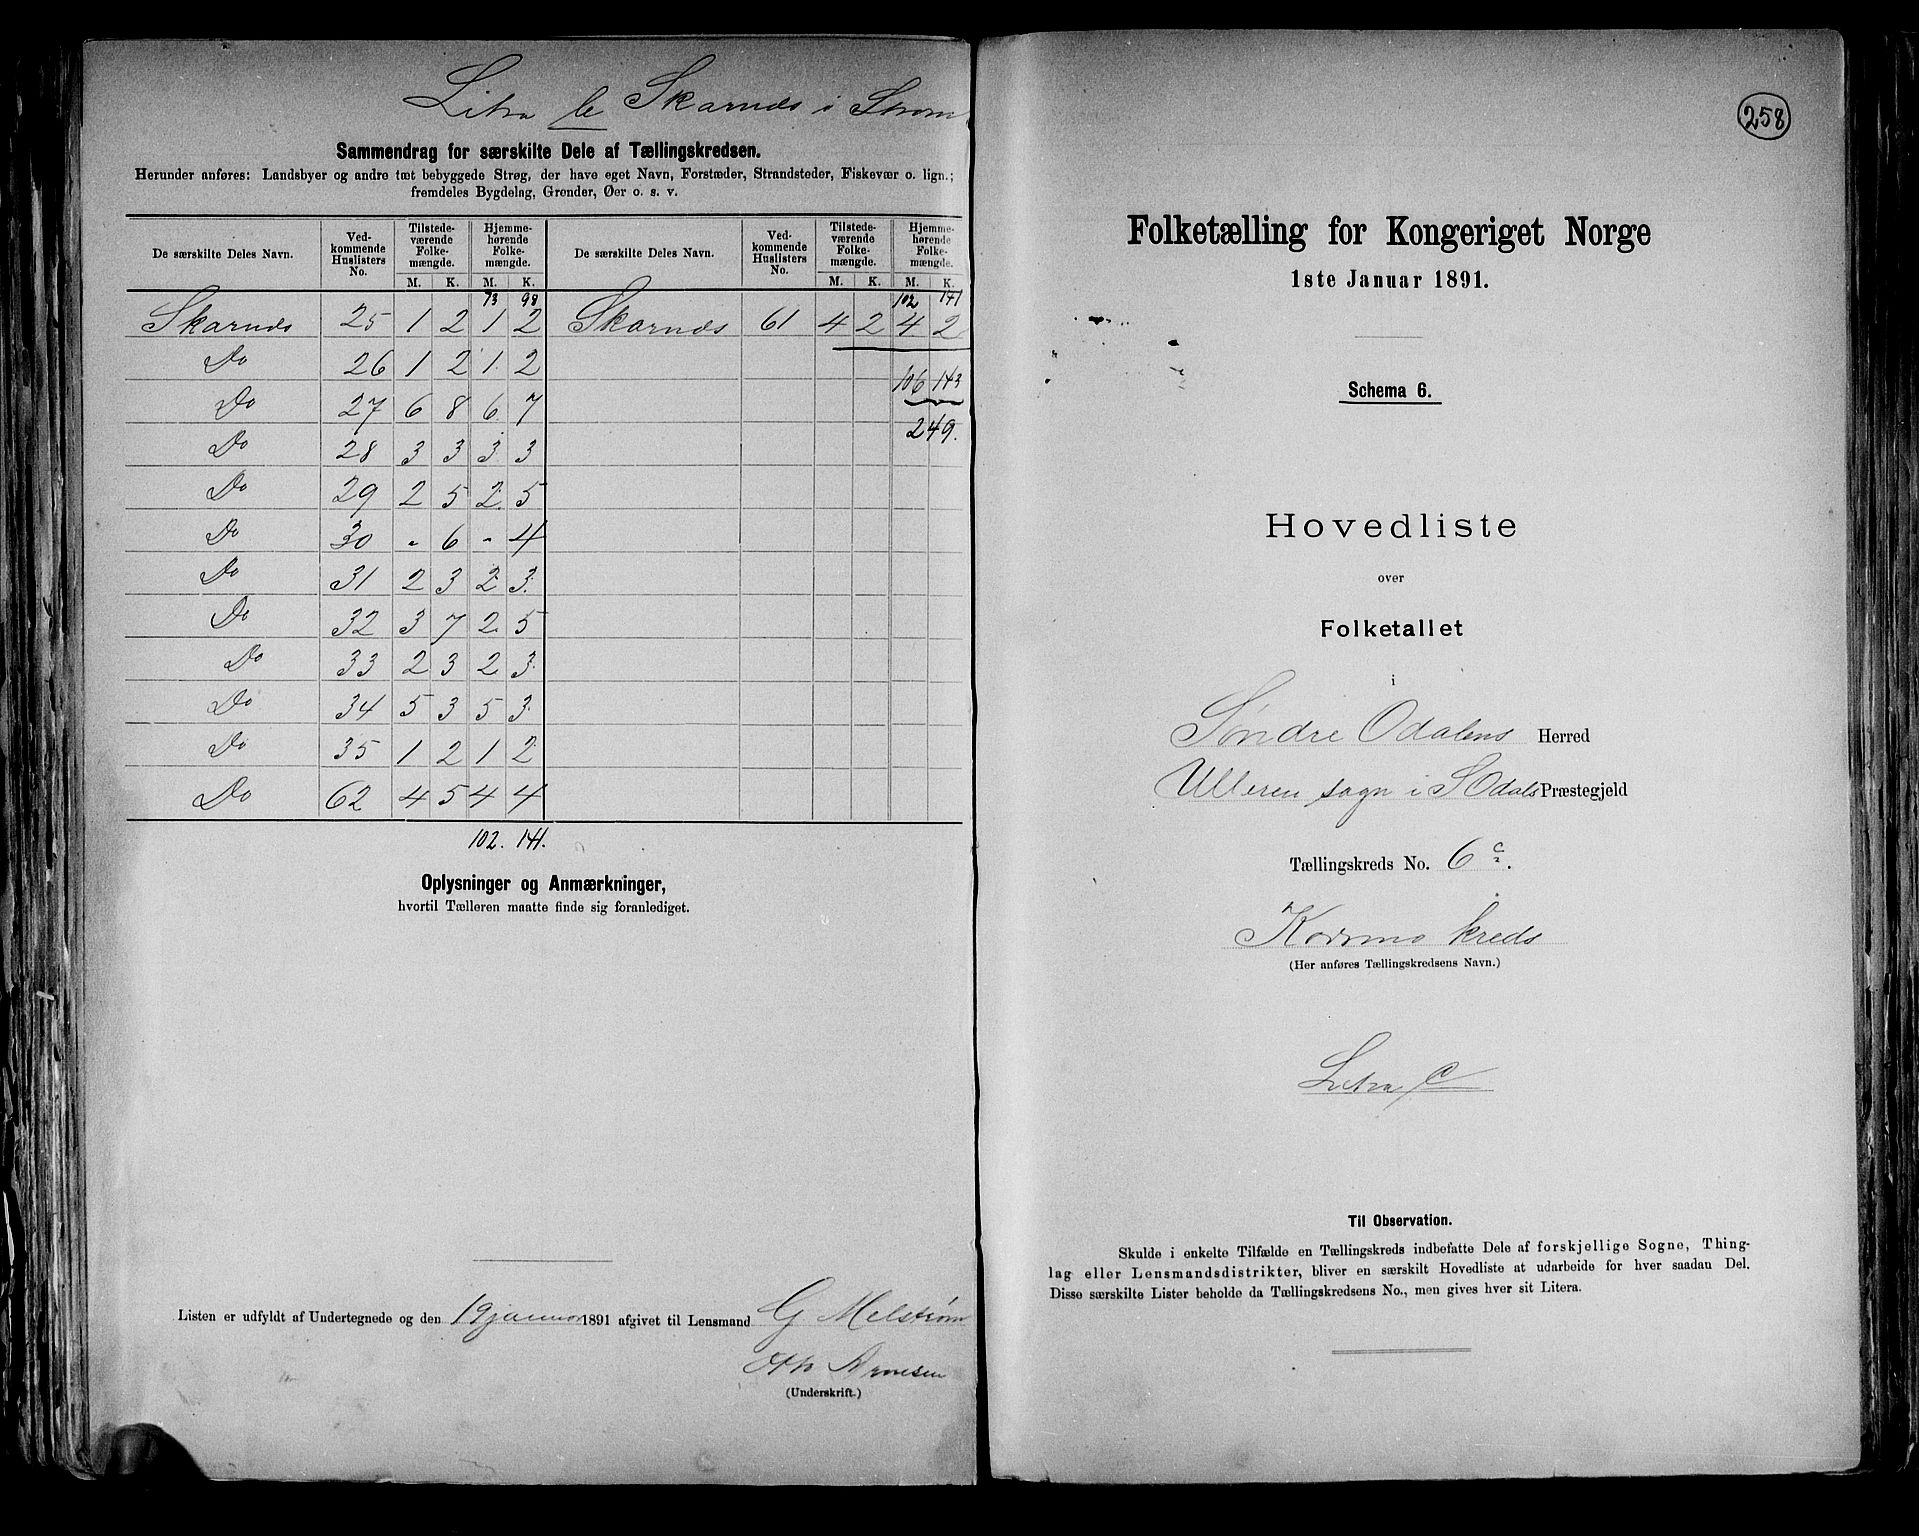 Litra b Skarnæs i Strøm
Sammendrag for særskilte Dele af Tællingskredsen.
Herunder anføres: Landsbyer og andre tæt bebyggede Strøg, der have eget Navn, Forstæder, Strandsteder, Fiskevær o. lign.;
fremdeles Bygdelag, Grender, Øer o. s. v.
De særskilte Deles Navn. Vedkommende Huslisters No. Tilstedeværende Folkemængde. Hjemmehørende Folkemængde. De særskilte Deles Navn. Vedkommende Huslisters No. Tilstedeværende Folkemængde. Hjemmehørende Folkemængde.
M. K. M. K. M. K. M. K.
73 98 102 141
Skarnæs 25 1 2 1 2 Skarnæs 61 4 2 4 2
Do 26 1 2 1 2
106 143
Do 27 6 8 6 7
249.
Do 28 3 3 3 3
Do 29 2 5 2 5
Do 30 " 6 " 4
Do 31 2 3 2 3
Do 32 3 7 2 5
Do 33 2 3 2 3
Do 34 5 3 5 3
Do 35 1 2 1 2
Do 62 4 5 4 4
102. 141.
Oplysninger og Anmærkninger,
hvortil Tælleren maatte finde sig foranlediget.
Listen er udfyldt af Undertegnede og den 19 januar 1891 afgivet til Lensmand G Melstrøm
Otto Arnesen
(Underskrift.)
258
Folketælling for Kongeriget Norge
1ste Januar 1891.
Schema 6.
Hovedliste
over
Folketallet
i
Søndre Odalens Herred
Ulleren sogn i S Odals Præstegjeld
Tællingskreds No. 6 c.
Korsmo kreds
(Her anføres Tællingskredsens Navn.)
Litra C
Til Observation.
Skulde i enkelte Tilfælde en Tællingskreds indbefatte Dele af forskjellige Sogne, Thing-
lag eller Lensmandsdistrikter, bliver en særskilt Hovedliste at udarbeide for hver saadan Del.
Disse særskilte Lister beholde da Tællingskredsens No., men gives hver sit Litera.